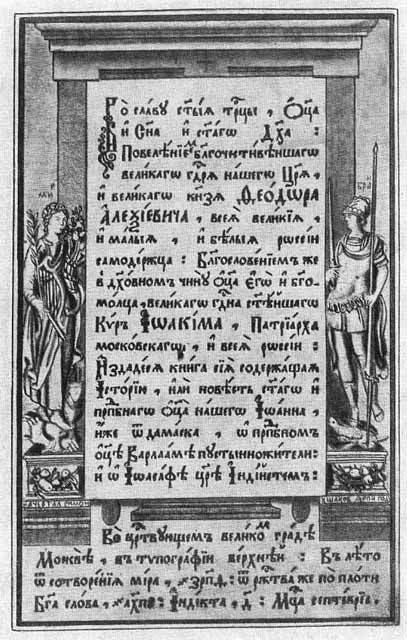 Во славу ст҃ыѧ трⷪ҇цы , Ѻ҆ц҃а
и҆ Сн҃а и҆ ст҃агѡ Дх҃а :
Повелѣнїемъ бл҃гочⷭ҇тивѣйшагѡ
великагѡ гдⷭ҇рѧ нашегѡ Цр҃ѧ ,
и҆ великагѡ кнѧзѧ Ѳео́дѡра
А҆леѯїевича , всеѧ̀ великїѧ ,
и҆ малыѧ , и҆ бѣлыѧ рѡссїи
самодержца : Бл҃гословенїемъ же
в дх҃овномъ чинꙋ ѻ҆ц҃а є҆гѡ̀ и҆ бг҃о-
молца , великагѡ гдⷭ҇на ст҃ѣйшагѡ
Кѵ́ръ І҆ѡакі́ма , Патрїарха
московскагѡ , и҆ всеѧ̀ рѡссїи :
И҆здадесѧ книга сїѧ̀ содержащаѧ
І҆сторїю , и҆лѝ повѣсть ст҃агѡ и҆
прпⷣбнагѡ ѻ҆ц҃а нашегѡ І҆ѡанна ,
и҆́же ѿ дамаска , ѡ҆ прпⷣбномъ
ѻ҆ц҃ѣ Варлаамѣ пꙋстынножители :
и҆ ѡ҆ І҆ѡасафѣ цр҃ѣ І҆ндїйстѣмъ :
Во црⷭ҇твꙋющемъ великомъ градѣ
Москвѣ , въ тѷпографїи верхней : Въ лѣто
ѿ сотворенїѧ мїра , ҂зрп҃ѳ : ѿ ржⷭ҇тва же по плоти
Бг҃а слова , ҂ахп҃ : І҆ндїкта , д҃ : Мцⷭ҇а септеврїѧ .